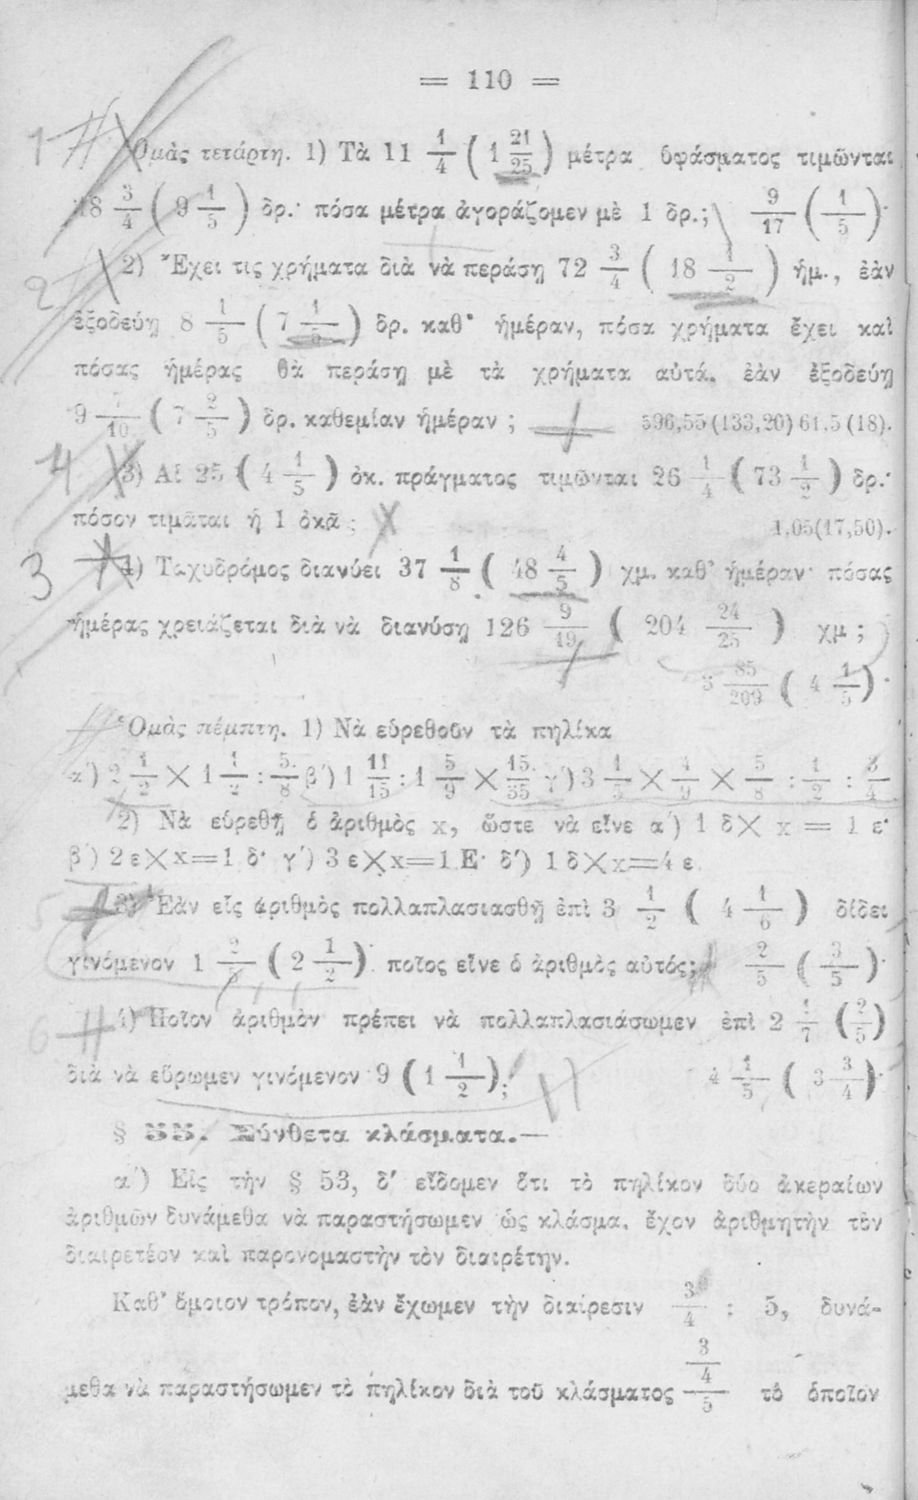 = 110 =
1 Ὁμὰς τετάρτη. 1) Τὰ 11 1/4 (1 21/25) μέτρα ὑφάσματος τιμῶνται
18 3/4 (9 1/5) δρ.· πόσα μέτρα ἀγοράζομεν μὲ 1 δρ.; 9/17 (1/5)·
2 2) Ἔχει τις χρήματα διὰ νὰ περάσῃ 72 3/4 (18 1/2) ἡμ., ἐὰν
ἐξοδεύῃ 8 1/5 (7 1/5) δρ. καθ' ἡμέραν, πόσα χρήματα ἔχει καὶ
πόσας ἡμέρας θὰ περάσῃ μὲ τὰ χρήματα αὐτά, ἐὰν ἐξοδεύῃ
9 7/10 (7 2/5) δρ. καθεμίαν ἡμέραν ; 596,55 (133,20) 61,5 (18).
4 3) Αἱ 25 (4 1/5) ὀκ. πράγματος τιμῶνται 26 1/4 (73 1/2) δρ.·
πόσον τιμᾶται ἡ 1 ὀκᾶ ; 1,05(17,50).
3 4) Ταχυδρόμος διανύει 37 1/8 (48 4/5) χμ. καθ' ἡμέραν· πόσας
ἡμέρας χρειάζεται διὰ νὰ διανύσῃ 126 9/19 (204 24/25) χμ ;
3 85/209 (4 1/5)·
Ὁμὰς πέμπτη. 1) Νὰ εὑρεθοῦν τὰ πηλίκα
α') 2 1/2 × 1 1/2 : 5/8 β') 1 11/15 : 1 5/9 × 15/35 γ') 3 1/5 × 4/9 × 5/8 : 1/2 : 3/4
2) Νὰ εὑρεθῇ ὁ ἀριθμὸς x, ὥστε νὰ εἶνε α') 1 δ × x = 1 ε·
β') 2 ε × x = 1 δ· γ') 3 ε × x = 1 Ε· δ') 1 δ × x = 4 ε
5 3) Ἐὰν εἷς ἀριθμὸς πολλαπλασιασθῇ ἐπὶ 3 1/2 (4 1/6) δίδει
γινόμενον 1 2/5 (2 1/2) ποῖος εἶνε ὁ ἀριθμὸς αὐτός; 2/5 (3/5)·
6 4) Ποῖον ἀριθμὸν πρέπει νὰ πολλαπλασιάσωμεν ἐπὶ 2 1/7 (2/5)
διὰ νὰ εὕρωμεν γινόμενον 9 (1 1/2); 4 1/5 (3 3/4)·
§ 55. Σύνθετα κλάσματα.—
α') Εἰς τὴν § 53, δ' εἴδομεν ὅτι τὸ πηλίκον δύο ἀκεραίων
ἀριθμῶν δυνάμεθα νὰ παραστήσωμεν ὡς κλάσμα, ἔχον ἀριθμητὴν τὸν
διαιρετέον καὶ παρονομαστὴν τὸν διαιρέτην.
Καθ' ὅμοιον τρόπον, ἐὰν ἔχωμεν τὴν διαίρεσιν 3/4 : 5, δυνά-
μεθα νὰ παραστήσωμεν τὸ πηλίκον διὰ τοῦ κλάσματος 3/4/5 τὸ ὁποῖον